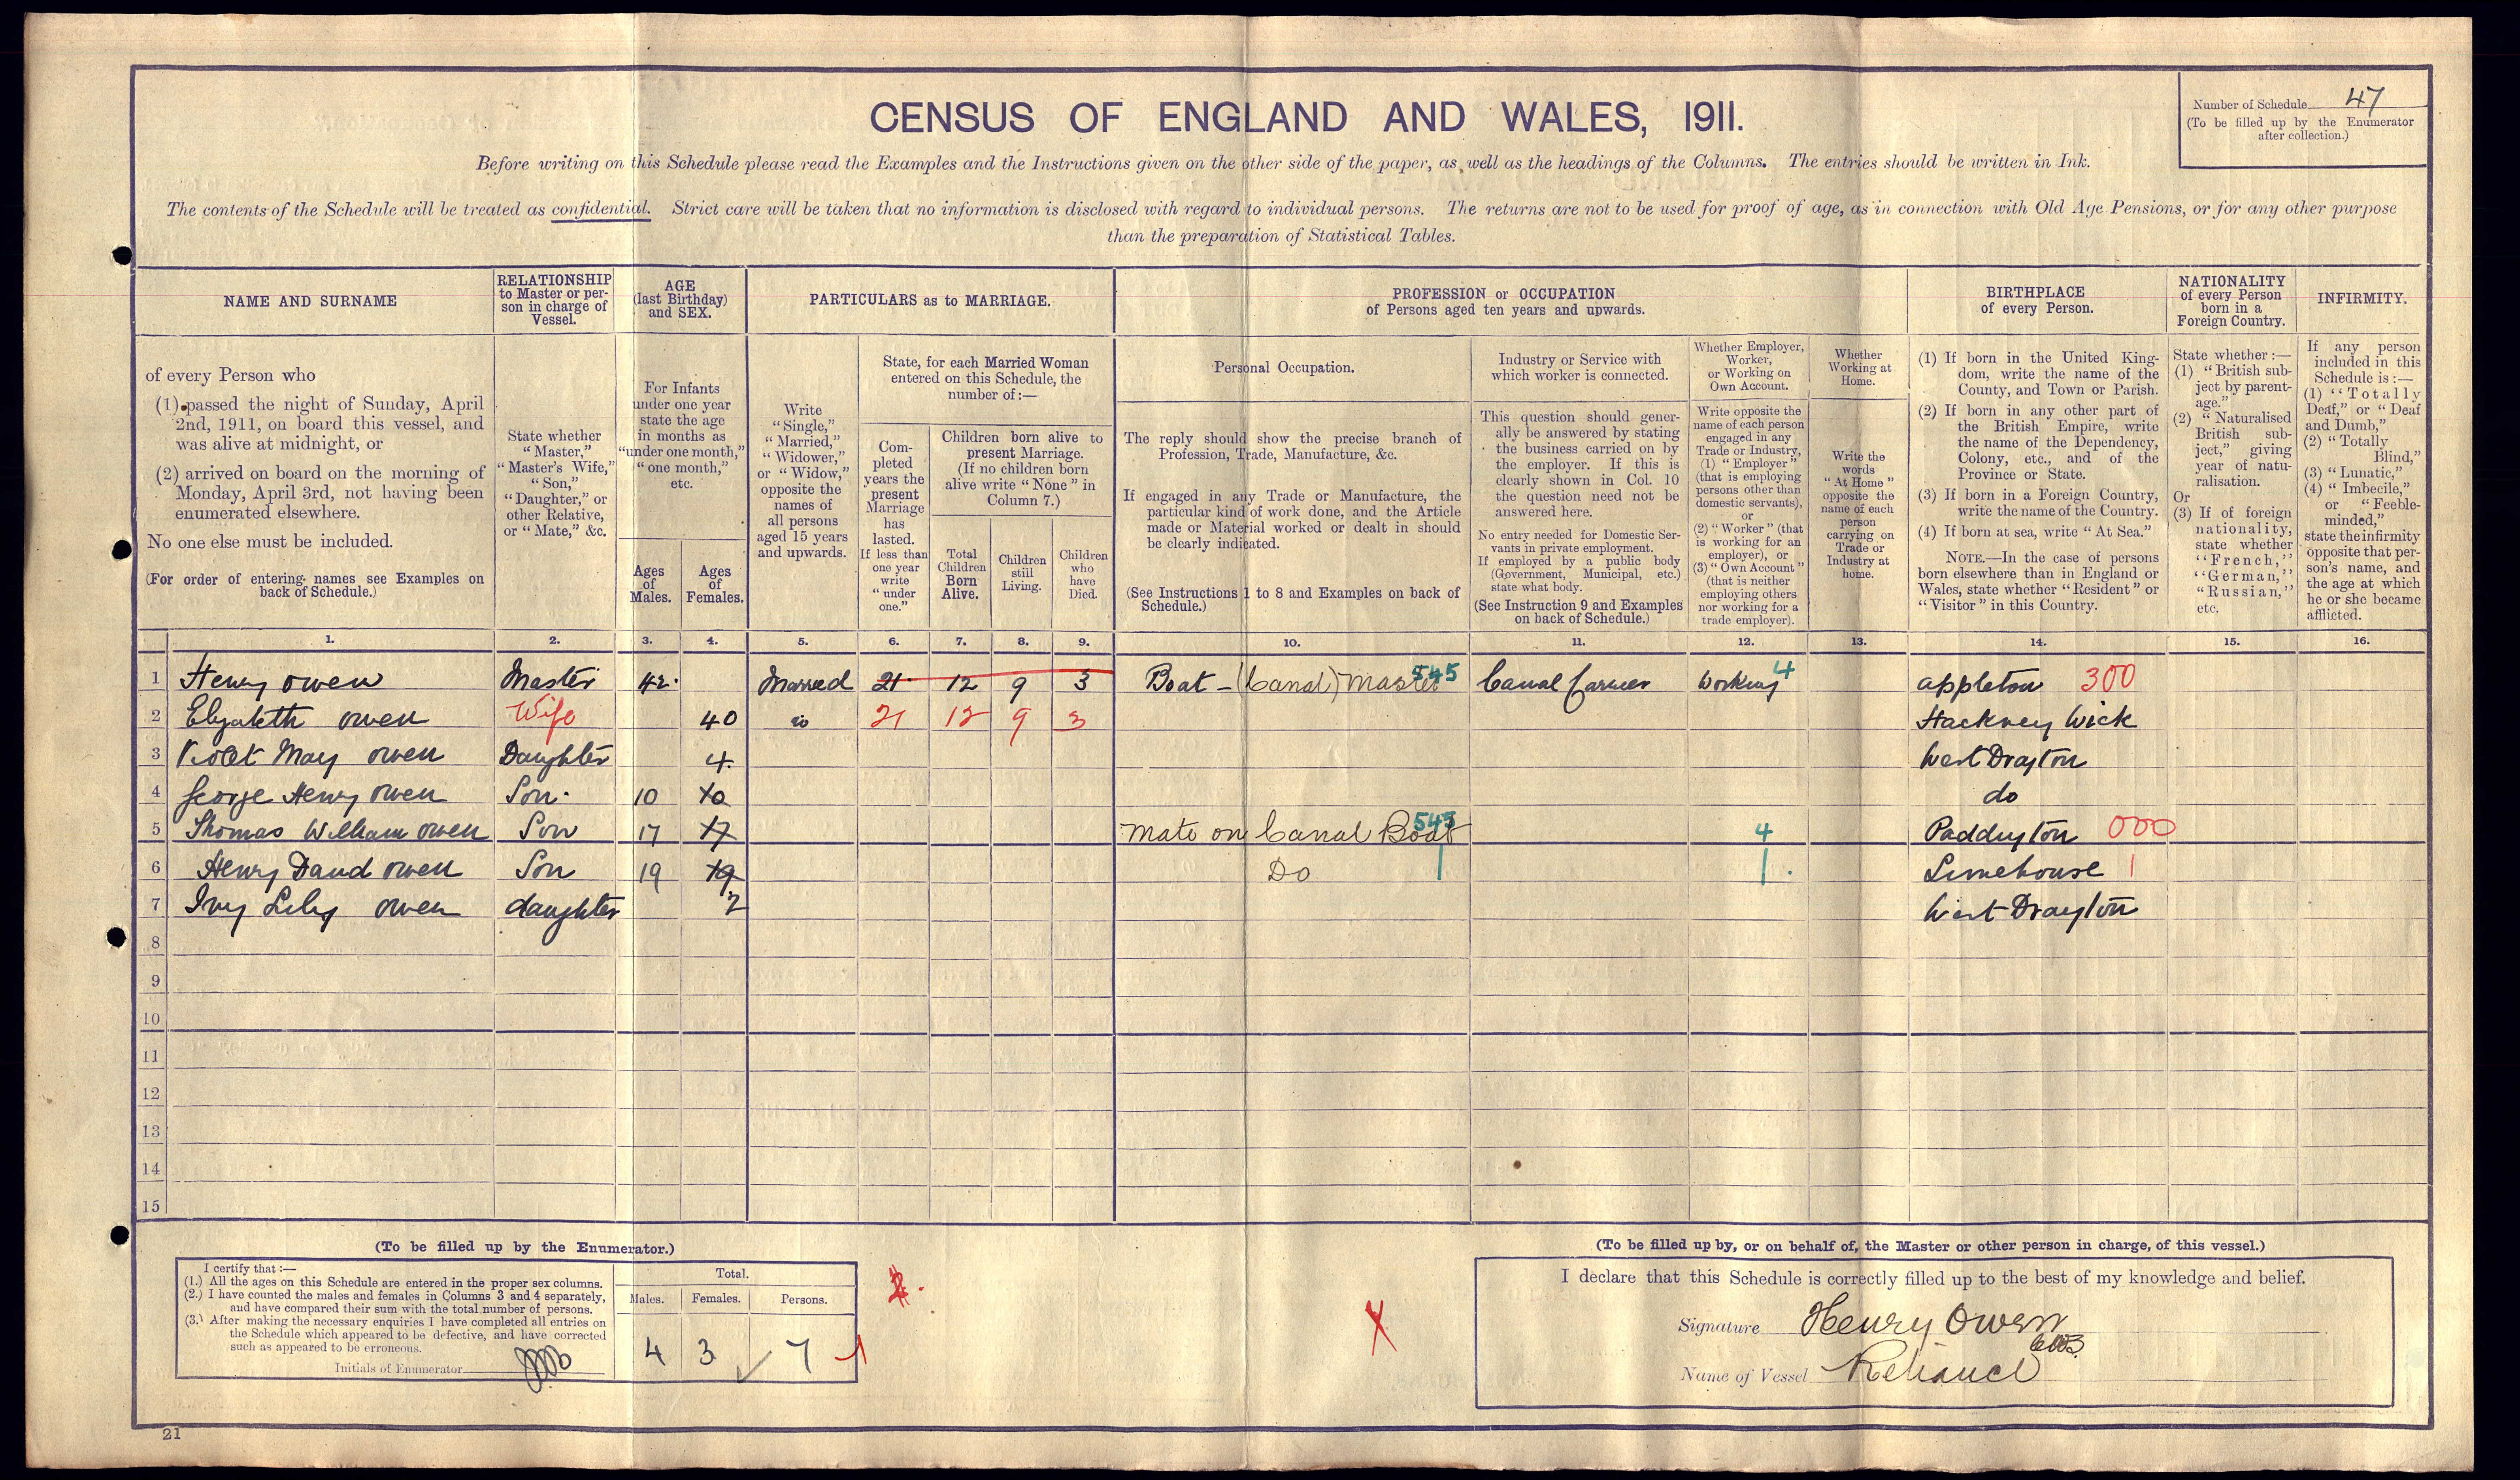 CENSUS OF ENGLAND AND WALES, 1911.
Number of Schedule 47
(To be filled up by the Enumerator
after collection.)
Before writing on this Schedule please read the Examples and the Instructions given on the other side of the paper, as well as the headings of the Columns. The entries should be written in Ink.
The contents of the Schedule will be treated as confidential. Strict care will be taken that no information is disclosed with regard to individual persons. The returns are not to be used for proof of age, as in connection with Old Age Pensions, or for any other purpose
than the preparation of Statistical Tables.
NAME AND SURNAME
of every Person who
(1) passed the night of Sunday, April
2nd, 1911, on board this vessel, and
was alive at midnight, or
(2) arrived on board on the morning of
Monday, April 3rd, not having been
enumerated elsewhere.
No one else must be included.
(For order of entering names see Examples on
back of Schedule.)
RELATIONSHIP
to Master or per-
son in charge of
Vessel.
State whether
"Master,"
"Master's Wife,"
"Son,"
"Daughter," or
other Relative,
or "Mate," &c.
AGE
(last Birthday)
and SEX.
For Infants
under one year
state the age
in months as
"under one month,"
"one month,"
etc.
Ages
of
Males.
Ages
of
Females.
PARTICULARS as to MARRIAGE.
Write
"Single,"
"Married,"
"Widower,"
or "Widow,"
opposite the
names of
all persons
aged 15 years
and upwards.
State, for each Married Woman
entered on this Schedule, the
number of:—
Com-
pleted
years the
present
Marriage
has
lasted.
If less than
one year
write
"under
one."
Children born alive to
present Marriage.
(If no children born
alive write "None" in
Column 7.)
Total
Children
Born
Alive.
Children
still
Living.
Children
who
have
Died.
PROFESSION or OCCUPATION
of Persons aged ten years and upwards.
Personal Occupation.
The reply should show the precise branch of
Profession, Trade, Manufacture, &c.
If engaged in any Trade or Manufacture, the
particular kind of work done, and the Article
made or Material worked or dealt in should
be clearly indicated.
(See Instructions 1 to 8 and Examples on back of
Schedule.)
Industry or Service with
which worker is connected.
This question should gener-
ally be answered by stating
the business carried on by
the employer. If this is
clearly shown in Col. 10
the question need not be
answered here.
No entry needed for Domestic Ser-
vants in private employment.
If employed by a public body
(Government, Municipal, etc.)
state what body.
(See Instruction 9 and Examples
on back of Schedule.)
Whether Employer,
Worker,
or Working on
Own Account.
Write opposite the
name of each person
engaged in any
Trade or Industry,
(1) "Employer"
(that is employing
persons other than
domestic servants),
or
(2) "Worker" (that
is working for an
employer), or
(3) "Own Account"
(that is neither
employing others
nor working for a
trade employer).
Whether
Working at
Home.
Write the
words
"At Home"
opposite the
name of each
person
carrying on
Trade or
Industry at
home.
BIRTHPLACE
of every Person.
(1) If born in the United King-
dom, write the name of the
County, and Town or Parish.
(2) If born in any other part of
the British Empire, write
the name of the Dependency,
Colony, etc., and of the
Province or State.
(3) If born in a Foreign Country,
write the name of the Country.
(4) If born at sea, write "At Sea."
NOTE.—In the case of persons
born elsewhere than in England or
Wales, state whether "Resident" or
"Visitor" in this Country.
NATIONALITY
of every Person
born in a
Foreign Country.
State whether:—
(1) "British sub-
ject by parent-
age."
(2) "Naturalised
British sub-
ject," giving
year of natu-
ralisation.
Or
(3) If of foreign
nationality,
state whether
"French,"
"German,"
"Russian,"
etc.
INFIRMITY.
If any person
included in this
Schedule is:—
(1) "Totally
Deaf," or "Deaf
and Dumb,"
(2) "Totally
Blind,"
(3) "Lunatic,"
(4) "Imbecile,"
or "Feeble-
minded,"
state the infirmity
opposite that per-
son's name, and
the age at which
he or she became
afflicted.
1. 2. 3. 4. 5. 6. 7. 8. 9. 10. 11. 12. 13. 14. 15. 16.
1 Henry Owen Master 42 Married 21 12 9 3 Boat - (Canal) Master 545 Canal Carrier Working 4 appleton 300
2 Elizabeth Owen Wife 40 do 21 12 9 3 Hackney Wick
3 Violet May Owen Daughter 4 West Drayton
4 George Henry Owen Son 10 10 do
5 Thomas William Owen Son 17 17 Mate on Canal Boat 545 4 Paddington 000
6 Henry David Owen Son 19 19 Do 1 1 Limehouse 1
7 Ivy Lily Owen daughter 2 West Drayton
8
9
10
11
12
13
14
15
(To be filled up by the Enumerator.)
I certify that:—
(1.) All the ages on this Schedule are entered in the proper sex columns.
(2.) I have counted the males and females in Columns 3 and 4 separately,
and have compared their sum with the total number of persons.
(3.) After making the necessary enquiries I have completed all entries on
the Schedule which appeared to be defective, and have corrected
such as appeared to be erroneous.
Initials of Enumerator
Total.
Males. Females. Persons.
4 3 7 1
X
(To be filled up by, or on behalf of, the Master or other person in charge, of this vessel.)
I declare that this Schedule is correctly filled up to the best of my knowledge and belief.
Signature Henry Owen
Name of Vessel Reliance
21